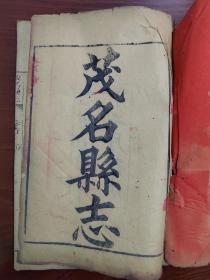 茂名縣志